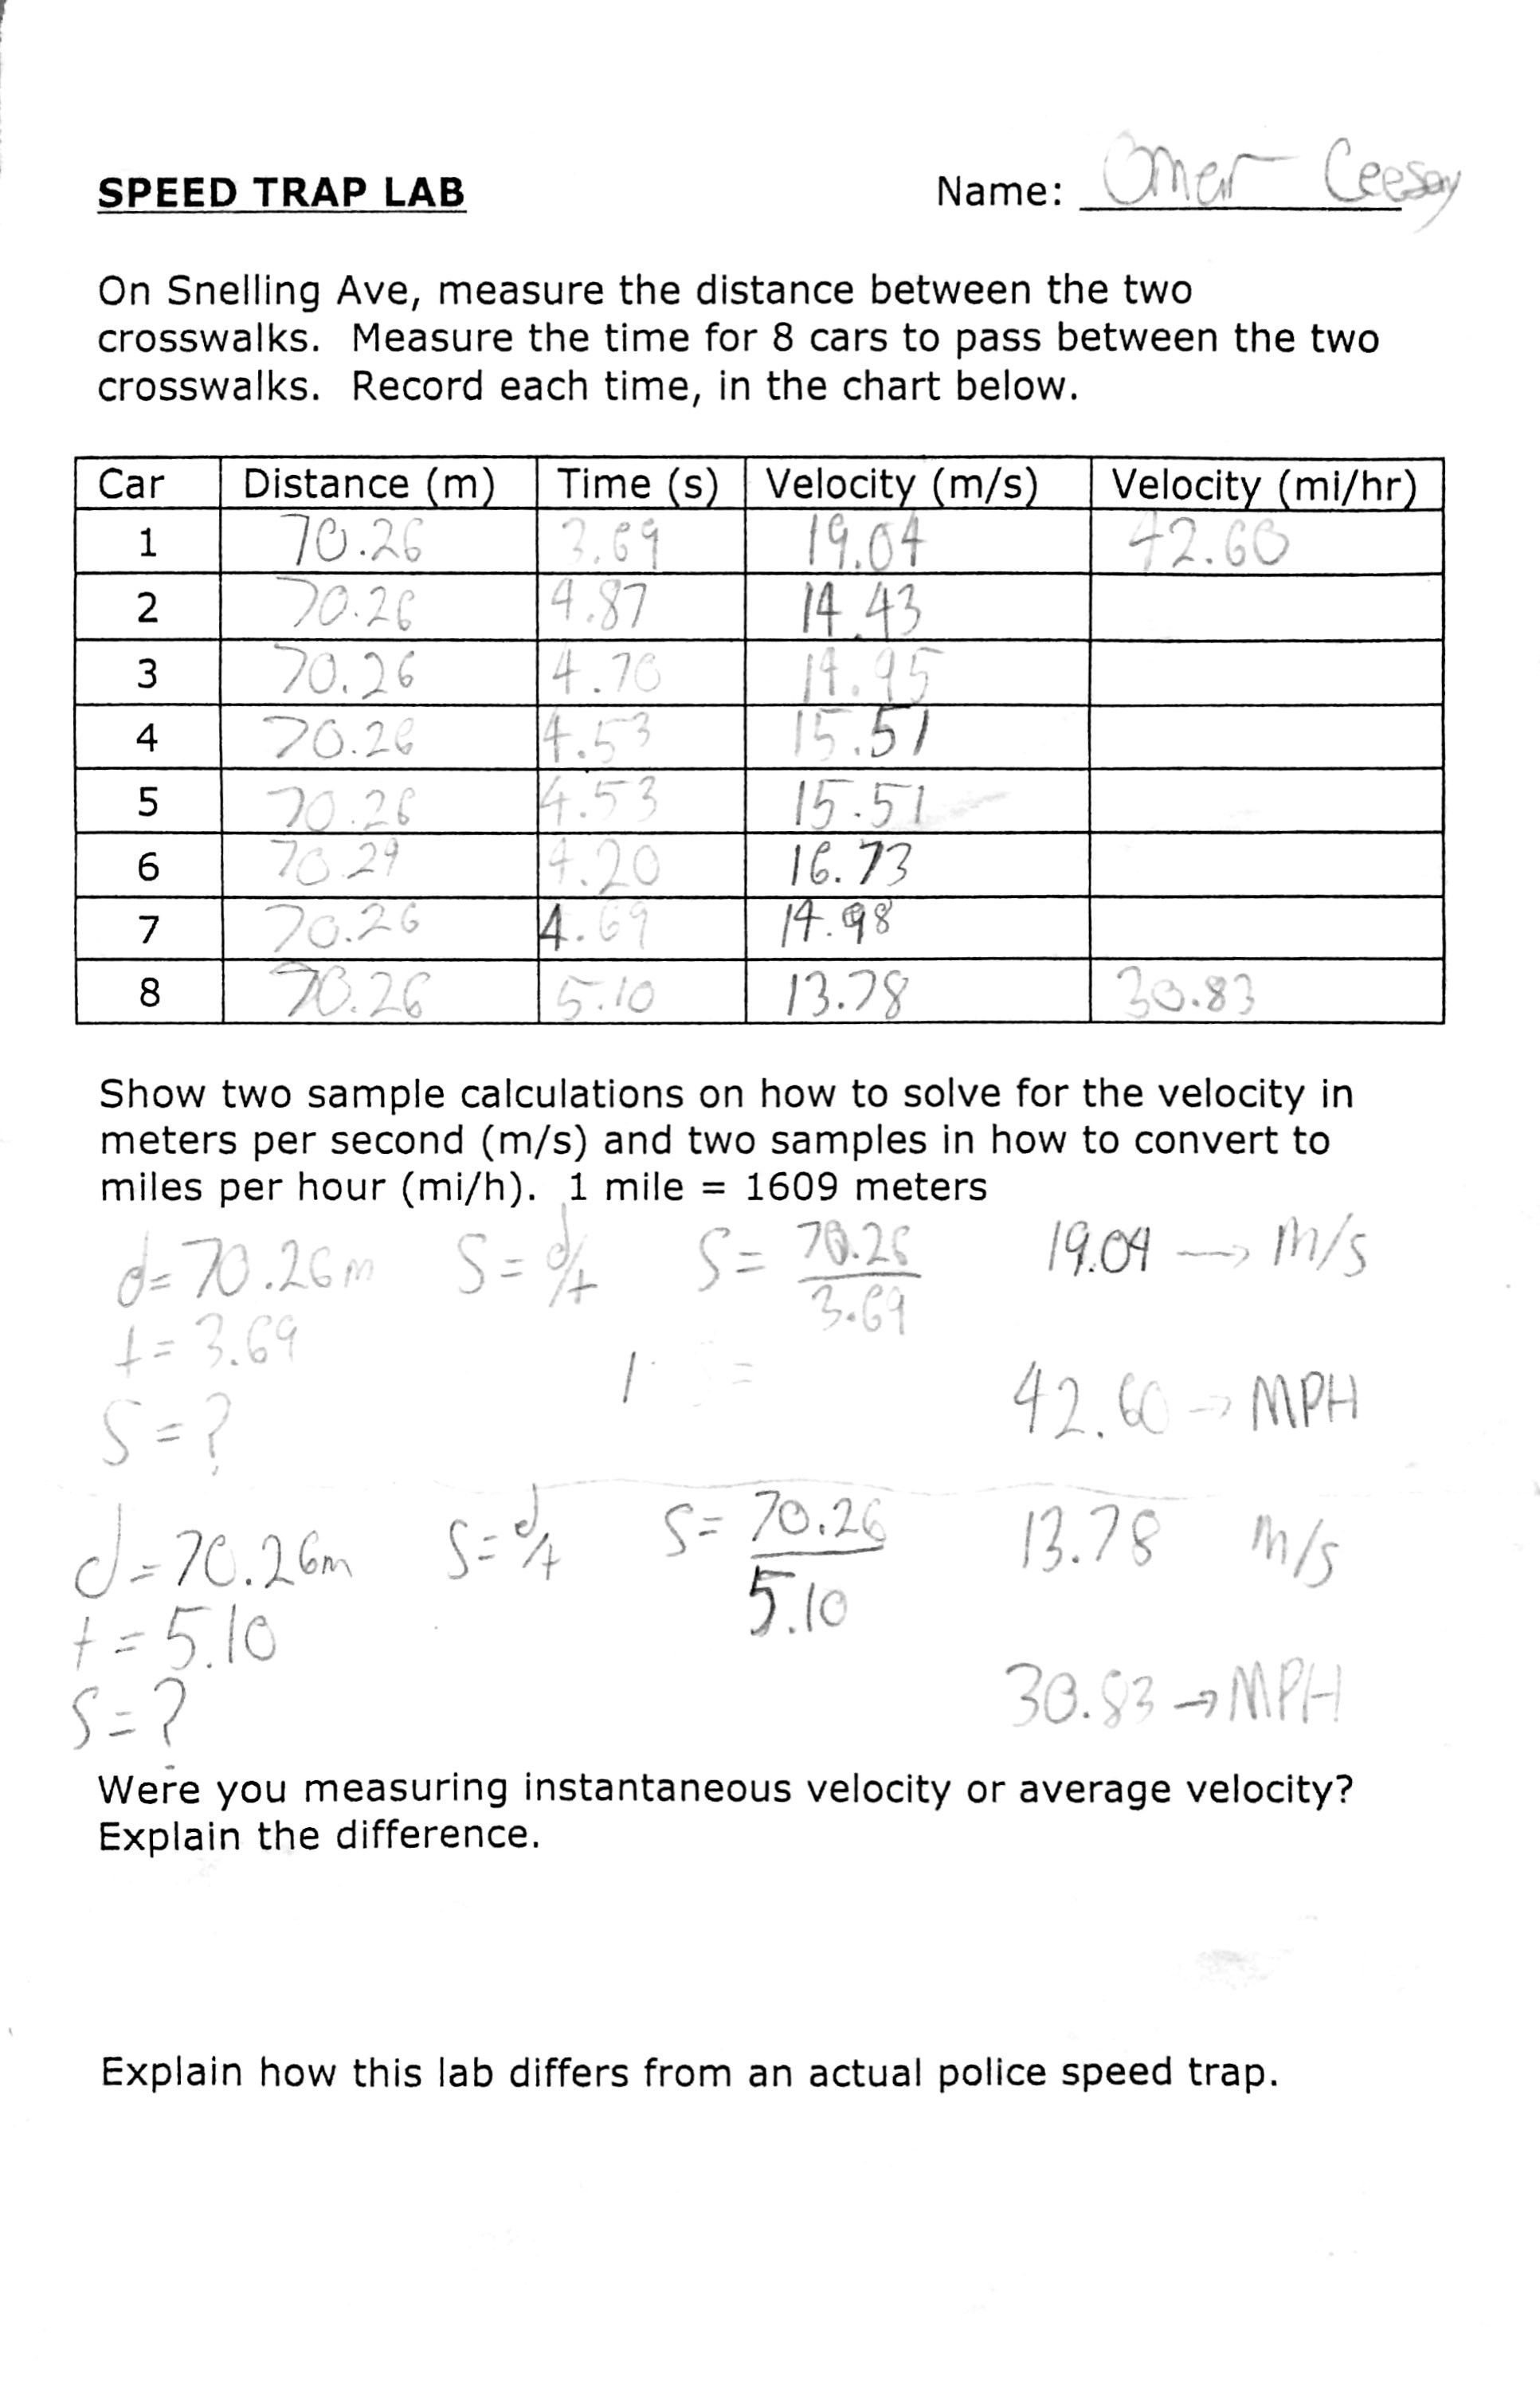 SPEED TRAP LAB Name: Omar Ceesay
On Snelling Ave, measure the distance between the two
crosswalks. Measure the time for 8 cars to pass between the two
crosswalks. Record each time, in the chart below.
Car Distance (m) Time (s) Velocity (m/s) Velocity (mi/hr)
1 70.26 3.69 19.04 42.60
2 70.26 4.87 14.43
3 70.26 4.70 14.95
4 70.26 4.53 15.51
5 70.26 4.53 15.51
6 70.29 4.20 16.73
7 70.26 4.69 14.98
8 70.26 5.10 13.78 30.83
Show two sample calculations on how to solve for the velocity in
meters per second (m/s) and two samples in how to convert to
miles per hour (mi/h). 1 mile = 1609 meters
d=70.26m S=d/t S=70.26/3.69 19.04 → m/s
t=3.69
S=?
42.60 → MPH
d=70.26m S=d/t S=70.26/5.10 13.78 m/s
t=5.10
S=?
30.83 → MPH
Were you measuring instantaneous velocity or average velocity?
Explain the difference.
Explain how this lab differs from an actual police speed trap.